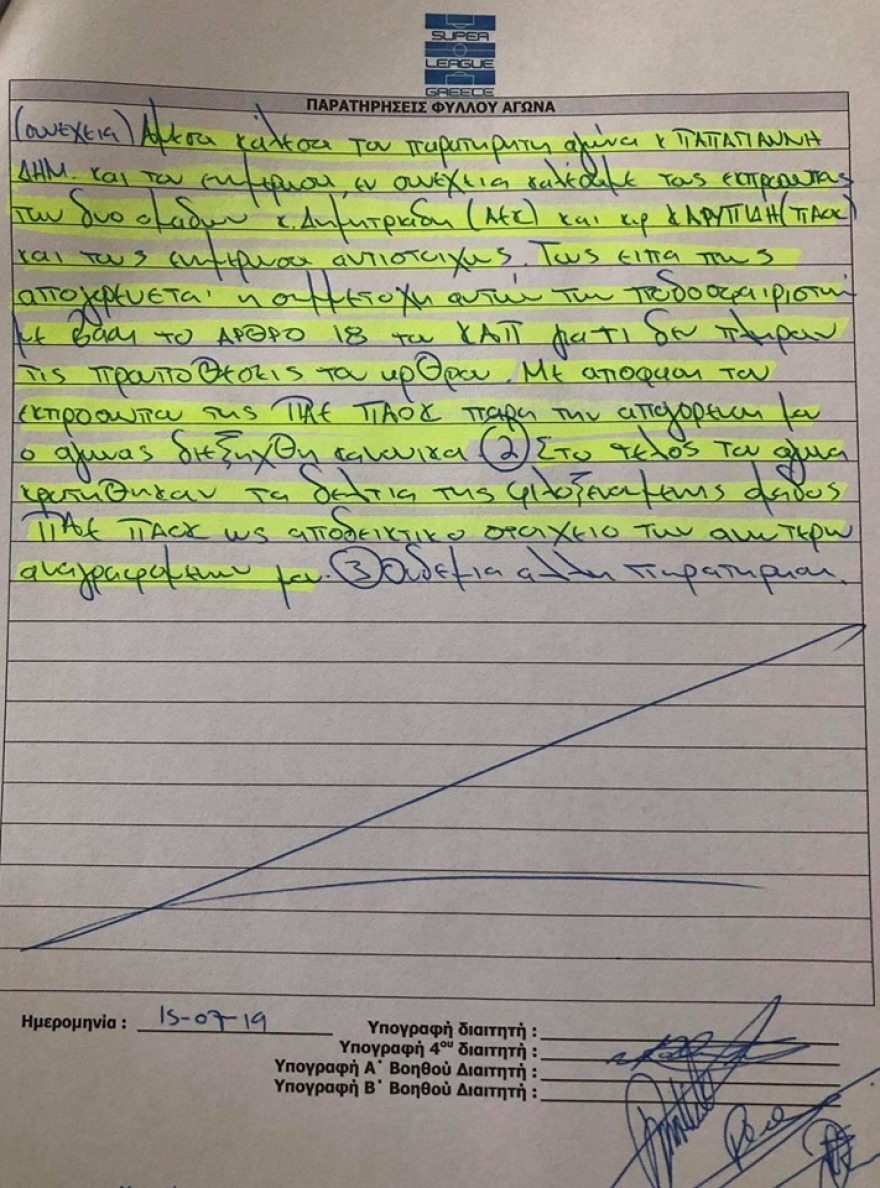 SUPER
LEAGUE
GREECE
ΠΑΡΑΤΗΡΗΣΕΙΣ ΦΥΛΛΟΥ ΑΓΩΝΑ
(συνεχεια) Αμεσα καλεσα τον παρατηρητη αγωνα κ ΠΑΠΑΓΙΑΝΝΗ
ΔΗΜ. και τον ενημερωσα, εν συνεχεια καλεσαμε τους εκπροσωπους
των δυο ομαδων κ. Δημητριαδη (ΑΕΚ) και κυρ ΚΑΡΥΠΙΔΗ (ΠΑΟΚ)
και τους ενημερωσα αντιστοιχως. Τους ειπα πως
απαγορευεται η συμμετοχη αυτων των ποδοσφαιριστων
με βαση το ΑΡΘΡΟ 18 του ΚΑΠ γιατι δεν πληρουν
τις προυποθεσεις του αρθρου. Με αποφαση του
εκπροσωπου της ΠΑΕ ΠΑΟΚ παρα την απαγορευση μου
ο αγωνας διεξηχθη κανονικα (2) Στο τελος του αγωνα
κρατηθηκαν τα δελτια της φιλοξενουμενης ομαδος
ΠΑΕ ΠΑΟΚ ως αποδεικτικο στοιχειο των ανωτερω
αναγραφομενων μου. (3) Ουδεμια αλλη παρατηρηση.
Ημερομηνία : 15-07-19
Υπογραφή διαιτητή :
Υπογραφή 4ου διαιτητή :
Υπογραφή Α΄ Βοηθού Διαιτητή :
Υπογραφή Β΄ Βοηθού Διαιτητή :